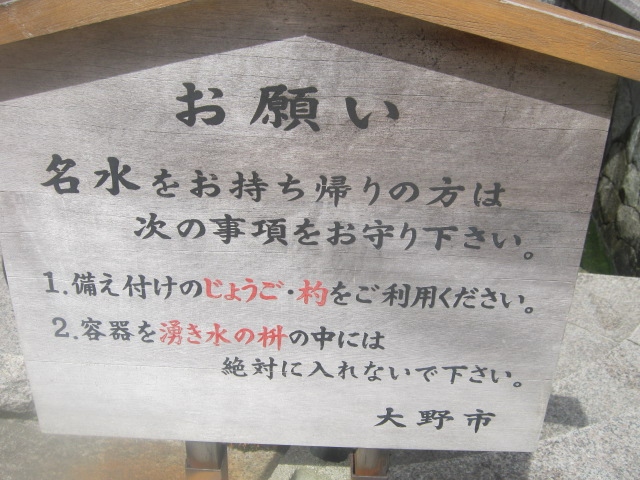 お願い
名水をお持ち帰りの方は
次の事項をお守り下さい。
1.備え付けのじょうご・杓をご利用ください。
2.容器を湧き水の枡の中には
絶対に入れないで下さい。
大野市